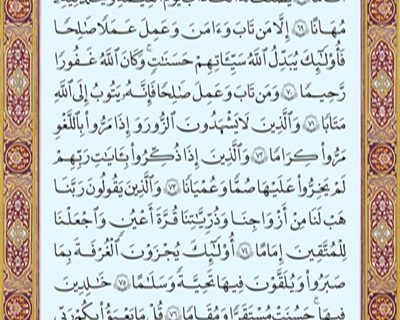 مُهَانًا ٦٩ إِلَّا مَن تَابَ وَءَامَنَ وَعَمِلَ عَمَلًا صَٰلِحًا
فَأُو۟لَٰٓئِكَ يُبَدِّلُ ٱللَّهُ سَيِّـَٔاتِهِمْ حَسَنَٰتٍ ۗ وَكَانَ ٱللَّهُ غَفُورًا
رَّحِيمًا ٧٠ وَمَن تَابَ وَعَمِلَ صَٰلِحًا فَإِنَّهُۥ يَتُوبُ إِلَى ٱللَّهِ
مَتَابًا ٧١ وَٱلَّذِينَ لَا يَشْهَدُونَ ٱلزُّورَ وَإِذَا مَرُّوا۟ بِٱللَّغْوِ
مَرُّوا۟ كِرَامًا ٧٢ وَٱلَّذِينَ إِذَا ذُكِّرُوا۟ بِـَٔايَٰتِ رَبِّهِمْ
لَمْ يَخِرُّوا۟ عَلَيْهَا صُمًّا وَعُمْيَانًا ٧٣ وَٱلَّذِينَ يَقُولُونَ رَبَّنَا
هَبْ لَنَا مِنْ أَزْوَٰجِنَا وَذُرِّيَّٰتِنَا قُرَّةَ أَعْيُنٍ وَٱجْعَلْنَا
لِلْمُتَّقِينَ إِمَامًا ٧٤ أُو۟لَٰٓئِكَ يُجْزَوْنَ ٱلْغُرْفَةَ بِمَا
صَبَرُوا۟ وَيُلَقَّوْنَ فِيهَا تَحِيَّةً وَسَلَٰمًا ٧٥ خَٰلِدِينَ
فِيهَا ۚ حَسُنَتْ مُسْتَقَرًّا وَمُقَامًا ٧٦ قُلْ مَا يَعْبَؤُا۟ بِكُمْ رَبِّى